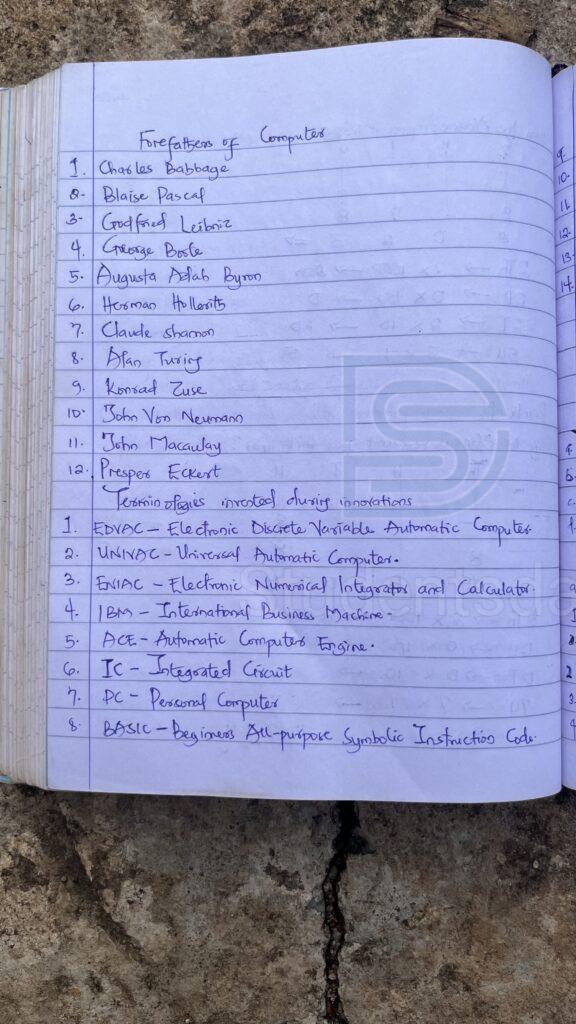 Forefathers of Computer
1. Charles Babbage
2. Blaise Pascal
3. Godfried Leibniz
4. George Boole
5. Augusta Adah Byron
6. Herman Hollerith
7. Claude Shannon
8. Alan Turing
9. Konrad Zuse
10. John Von Neumann
11. John Macaulay
12. Presper Eckert
Terminologies invented during innovations
1. EDVAC - Electronic Discrete Variable Automatic Computer
2. UNIVAC - Universal Automatic Computer.
3. ENIAC - Electronic Numerical Integrator and Calculator.
4. IBM - International Business Machine -
5. ACE - Automatic Computer Engine.
6. IC - Integrated Circuit
7. PC - Personal Computer
8. BASIC - Beginners All-purpose Symbolic Instruction Code.
9.
10.
11
12.
13.
14.